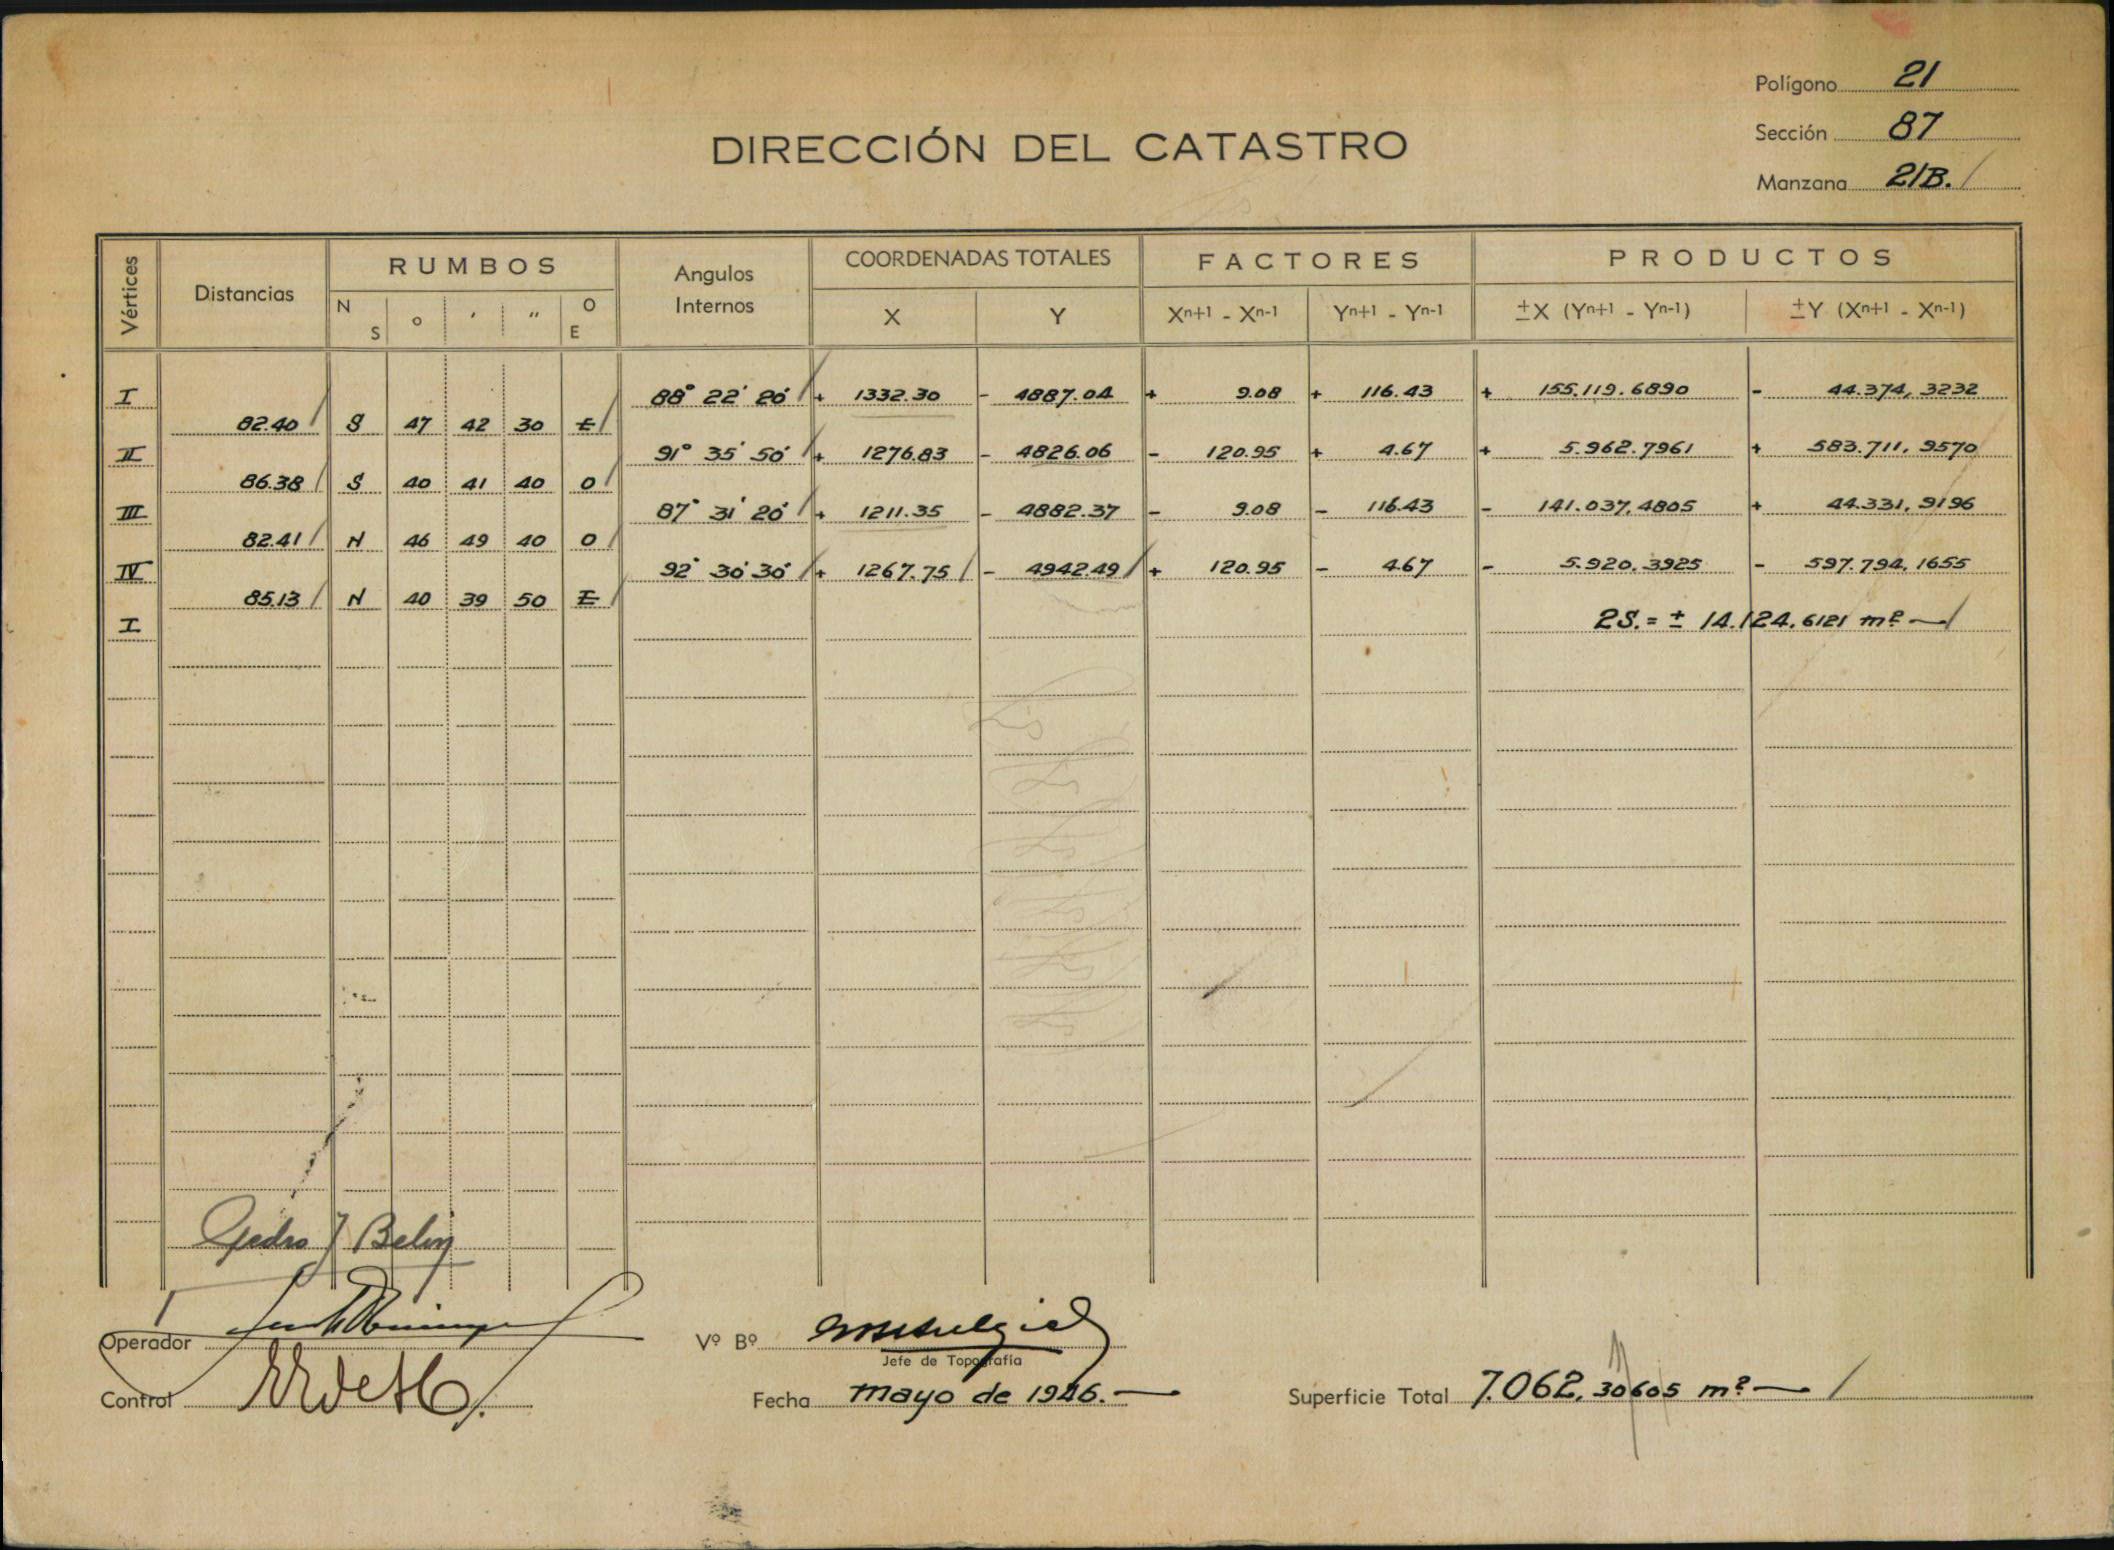 Polígono 21
Sección 87
Manzana 21B.
DIRECCIÓN DEL CATASTRO
Vértices Distancias RUMBOS Angulos Internos COORDENADAS TOTALES FACTORES PRODUCTOS
N S ° ' " O E X Y Xn+1 - Xn-1 Yn+1 - Yn-1 ±X (Yn+1 - Yn-1) ±Y (Xn+1 - Xn-1)
I 88° 22' 20" + 1332.30 - 4887.04 + 9.08 + 116.43 + 155.119.6890 - 44.374,3232
82.40 S 47 42 30 E
II 91° 35' 50" + 1276.83 - 4826.06 - 120.95 + 4.67 + 5.962.7961 + 583.711,9570
86.38 S 40 41 40 O
III 87° 31' 20" + 1211.35 - 4882.37 - 9.08 - 116.43 - 141.037,4805 + 44.331,9196
82.41 N 46 49 40 O
IV 92° 30' 30" + 1267.75 - 4942.49 + 120.95 - 4.67 - 5.920.3925 - 597.794,1655
85.13 N 40 39 50 E
I 2S. = ± 14.124.6121 m²
Pedro J
Operador
Control
Vº Bº
Jefe de Topografía
Fecha mayo de 1946.
Superficie Total 7.062,30605 m²